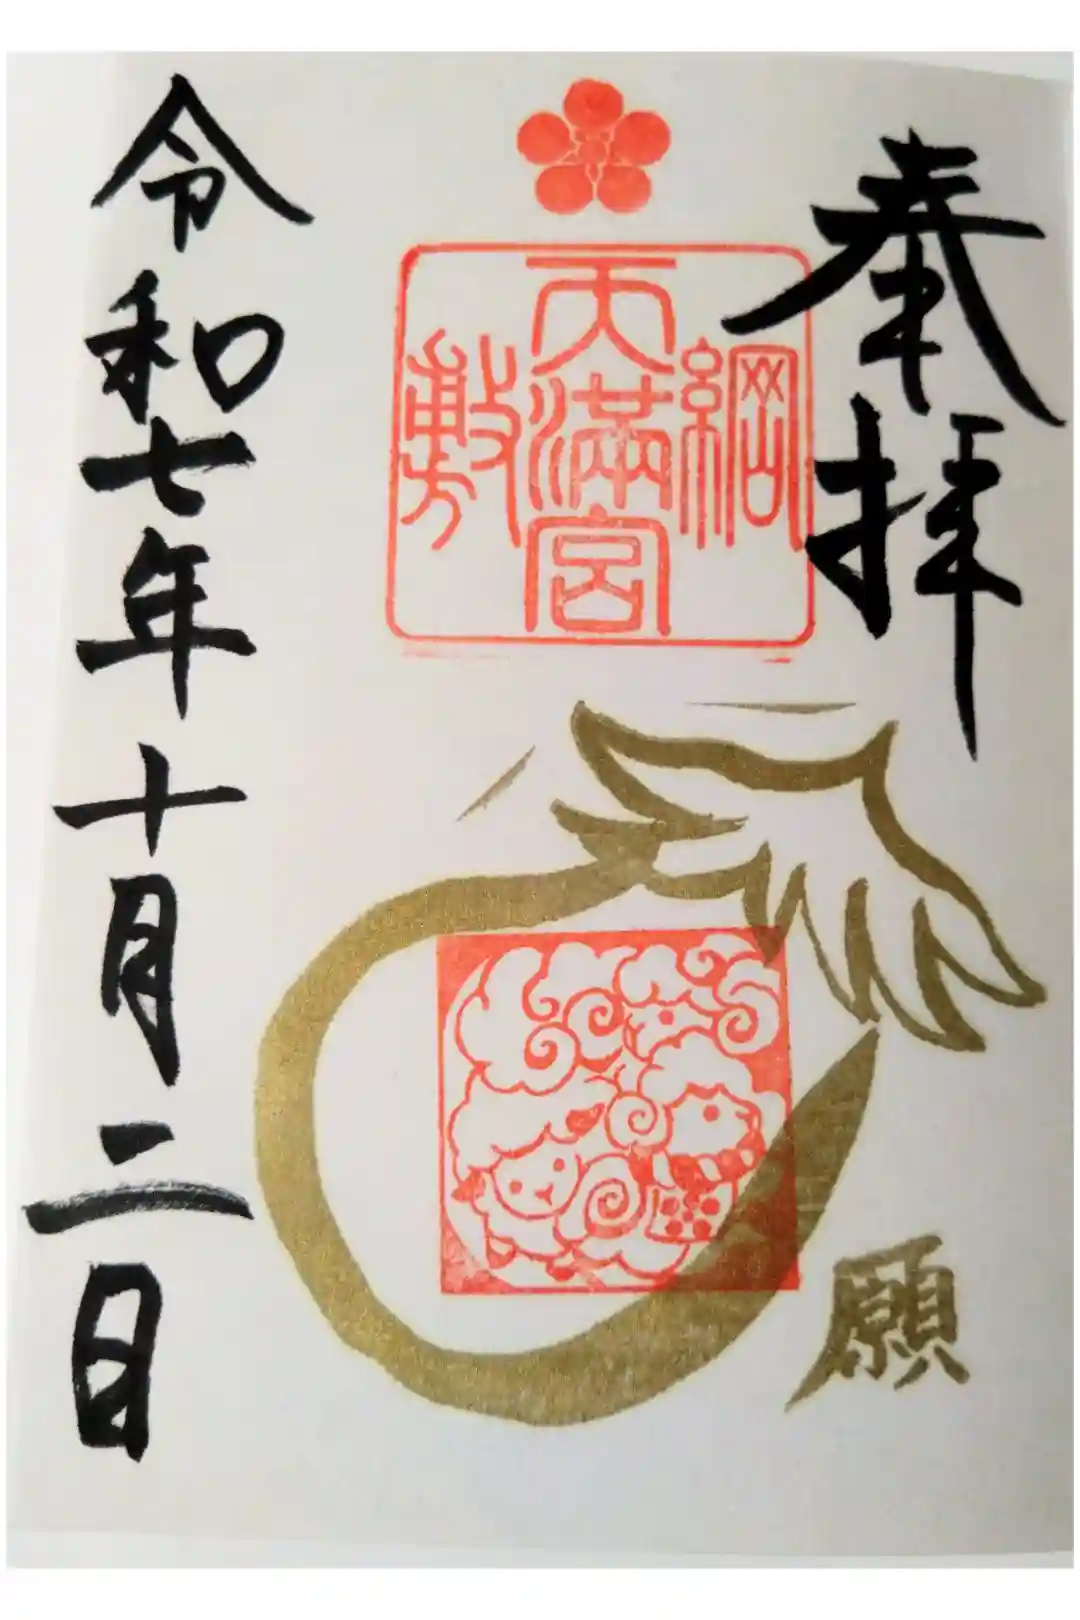 奉拝
綱敷天満宮
願
令和七年十月二日